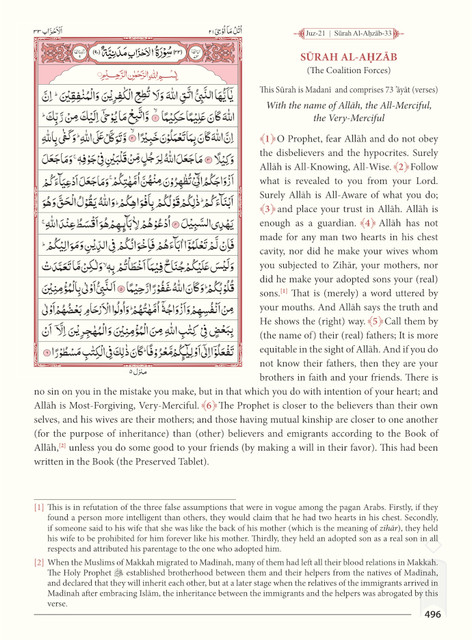 اُتْلُ مَآ اُوْحِیَ ٢١
اَلْاَحْزَاب ٣٣
سُوْرَةُ الْاَحْزَابِ مَدَنِيَّةٌ
بِسْمِ اللّٰهِ الرَّحْمٰنِ الرَّحِيْمِ
يٰۤاَيُّهَا النَّبِيُّ اتَّقِ اللّٰهَ وَلَا تُطِعِ الْكٰفِرِيْنَ وَالْمُنٰفِقِيْنَ ؕ اِنَّ
اللّٰهَ كَانَ عَلِيْمًا حَكِيْمًا ۙ﴿۱﴾ وَّاتَّبِعْ مَا يُوْحٰۤى اِلَيْكَ مِنْ رَّبِّكَ ؕ
اِنَّ اللّٰهَ كَانَ بِمَا تَعْمَلُوْنَ خَبِيْرًا ۙ﴿۲﴾ وَّتَوَكَّلْ عَلَى اللّٰهِ ؕ وَكَفٰى بِاللّٰهِ
وَكِيْلًا ﴿۳﴾ مَا جَعَلَ اللّٰهُ لِرَجُلٍ مِّنْ قَلْبَيْنِ فِيْ جَوْفِهٖ ۚ وَمَا جَعَلَ
اَزْوَاجَكُمُ الّٰٓـِٔيْ تُظٰهِرُوْنَ مِنْهُنَّ اُمَّهٰتِكُمْ ۚ وَمَا جَعَلَ اَدْعِيَآءَكُمْ
اَبْنَآءَكُمْ ؕ ذٰلِكُمْ قَوْلُكُمْ بِاَفْوَاهِكُمْ ؕ وَاللّٰهُ يَقُوْلُ الْحَقَّ وَهُوَ
يَهْدِي السَّبِيْلَ ﴿۴﴾ اُدْعُوْهُمْ لِاٰبَآئِهِمْ هُوَ اَقْسَطُ عِنْدَ اللّٰهِ ۚ
فَاِنْ لَّمْ تَعْلَمُوْۤا اٰبَآءَهُمْ فَاِخْوَانُكُمْ فِي الدِّيْنِ وَمَوَالِيْكُمْ ؕ
وَلَيْسَ عَلَيْكُمْ جُنَاحٌ فِيْمَاۤ اَخْطَاْتُمْ بِهٖ ۙ وَلٰكِنْ مَّا تَعَمَّدَتْ
قُلُوْبُكُمْ ؕ وَكَانَ اللّٰهُ غَفُوْرًا رَّحِيْمًا ﴿۵﴾ اَلنَّبِيُّ اَوْلٰى بِالْمُؤْمِنِيْنَ
مِنْ اَنْفُسِهِمْ وَاَزْوَاجُهٗۤ اُمَّهٰتُهُمْ ؕ وَاُولُوا الْاَرْحَامِ بَعْضُهُمْ اَوْلٰى
بِبَعْضٍ فِيْ كِتٰبِ اللّٰهِ مِنَ الْمُؤْمِنِيْنَ وَالْمُهٰجِرِيْنَ اِلَّاۤ اَنْ
تَفْعَلُوْۤا اِلٰۤى اَوْلِيٰٓئِكُمْ مَّعْرُوْفًا ؕ كَانَ ذٰلِكَ فِي الْكِتٰبِ مَسْطُوْرًا ﴿۶﴾
منزل ٥
Juz-21 | Sūrah Al-Aḥzāb-33
SŪRAH AL-AḤZĀB
(The Coalition Forces)
This Sūrah is Madanī and comprises 73 'āyāt (verses)
With the name of Allāh, the All-Merciful,
the Very-Merciful
﴾1﴿ O Prophet, fear Allāh and do not obey
the disbelievers and the hypocrites. Surely
Allāh is All-Knowing, All-Wise. ﴾2﴿ Follow
what is revealed to you from your Lord.
Surely Allāh is All-Aware of what you do;
﴾3﴿ and place your trust in Allāh. Allāh is
enough as a guardian. ﴾4﴿ Allāh has not
made for any man two hearts in his chest
cavity, nor did he make your wives whom
you subjected to Zihār, your mothers, nor
did he make your adopted sons your (real)
sons.[1] That is (merely) a word uttered by
your mouths. And Allāh says the truth and
He shows the (right) way. ﴾5﴿ Call them by
(the name of) their (real) fathers; It is more
equitable in the sight of Allāh. And if you do
not know their fathers, then they are your
brothers in faith and your friends. There is
no sin on you in the mistake you make, but in that which you do with intention of your heart; and
Allāh is Most-Forgiving, Very-Merciful. ﴾6﴿ The Prophet is closer to the believers than their own
selves, and his wives are their mothers; and those having mutual kinship are closer to one another
(for the purpose of inheritance) than (other) believers and emigrants according to the Book of
Allāh,[2] unless you do some good to your friends (by making a will in their favor). This had been
written in the Book (the Preserved Tablet).
[1] This is in refutation of the three false assumptions that were in vogue among the pagan Arabs. Firstly, if they
found a person more intelligent than others, they would claim that he had two hearts in his chest. Secondly,
if someone said to his wife that she was like the back of his mother (which is the meaning of zihār), they held
his wife to be prohibited for him forever like his mother. Thirdly, they held an adopted son as a real son in all
respects and attributed his parentage to the one who adopted him.
[2] When the Muslims of Makkah migrated to Madinah, many of them had left all their blood relations in Makkah.
The Holy Prophet ﷺ established brotherhood between them and their helpers from the natives of Madinah,
and declared that they will inherit each other, but at a later stage when the relatives of the immigrants arrived in
Madinah after embracing Islām, the inheritance between the immigrants and the helpers was abrogated by this
verse.
496